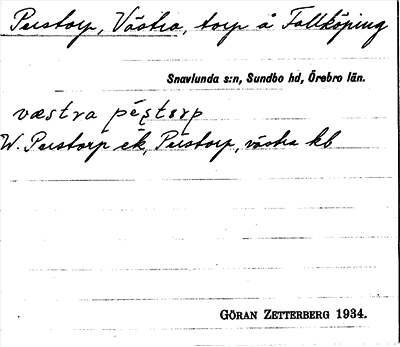 Perstorp, Västra, torp å Falköping
Snavlunda s:n, Sundbo hd, Örebro län.
væstra pęstɔrp
W. Perstorp ek, Perstorp, västra kb
GÖRAN ZETTERBERG 1934.